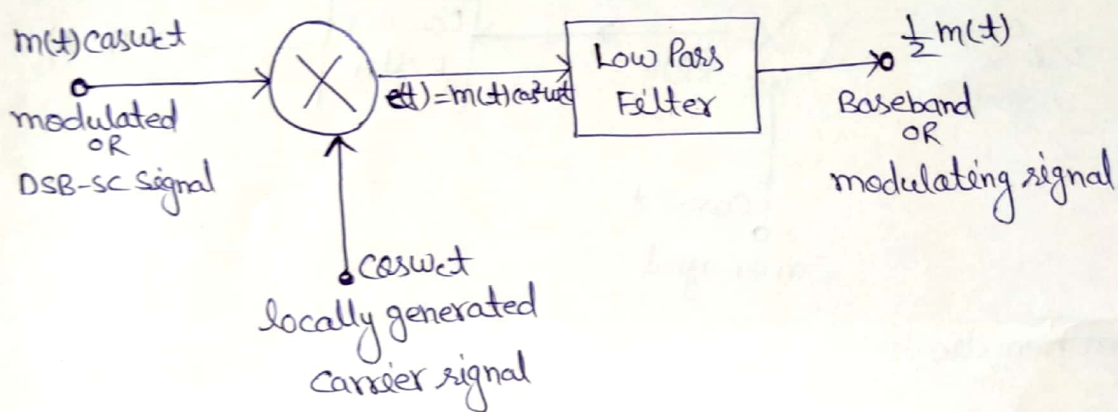 m(t) cosωct
modulated
OR
DSB-SC Signal
X
e(t)=m(t)cos²ωct
Low Pass
Filter
½ m(t)
Baseband
OR
modulating signal
cosωct
locally generated
Carrier signal